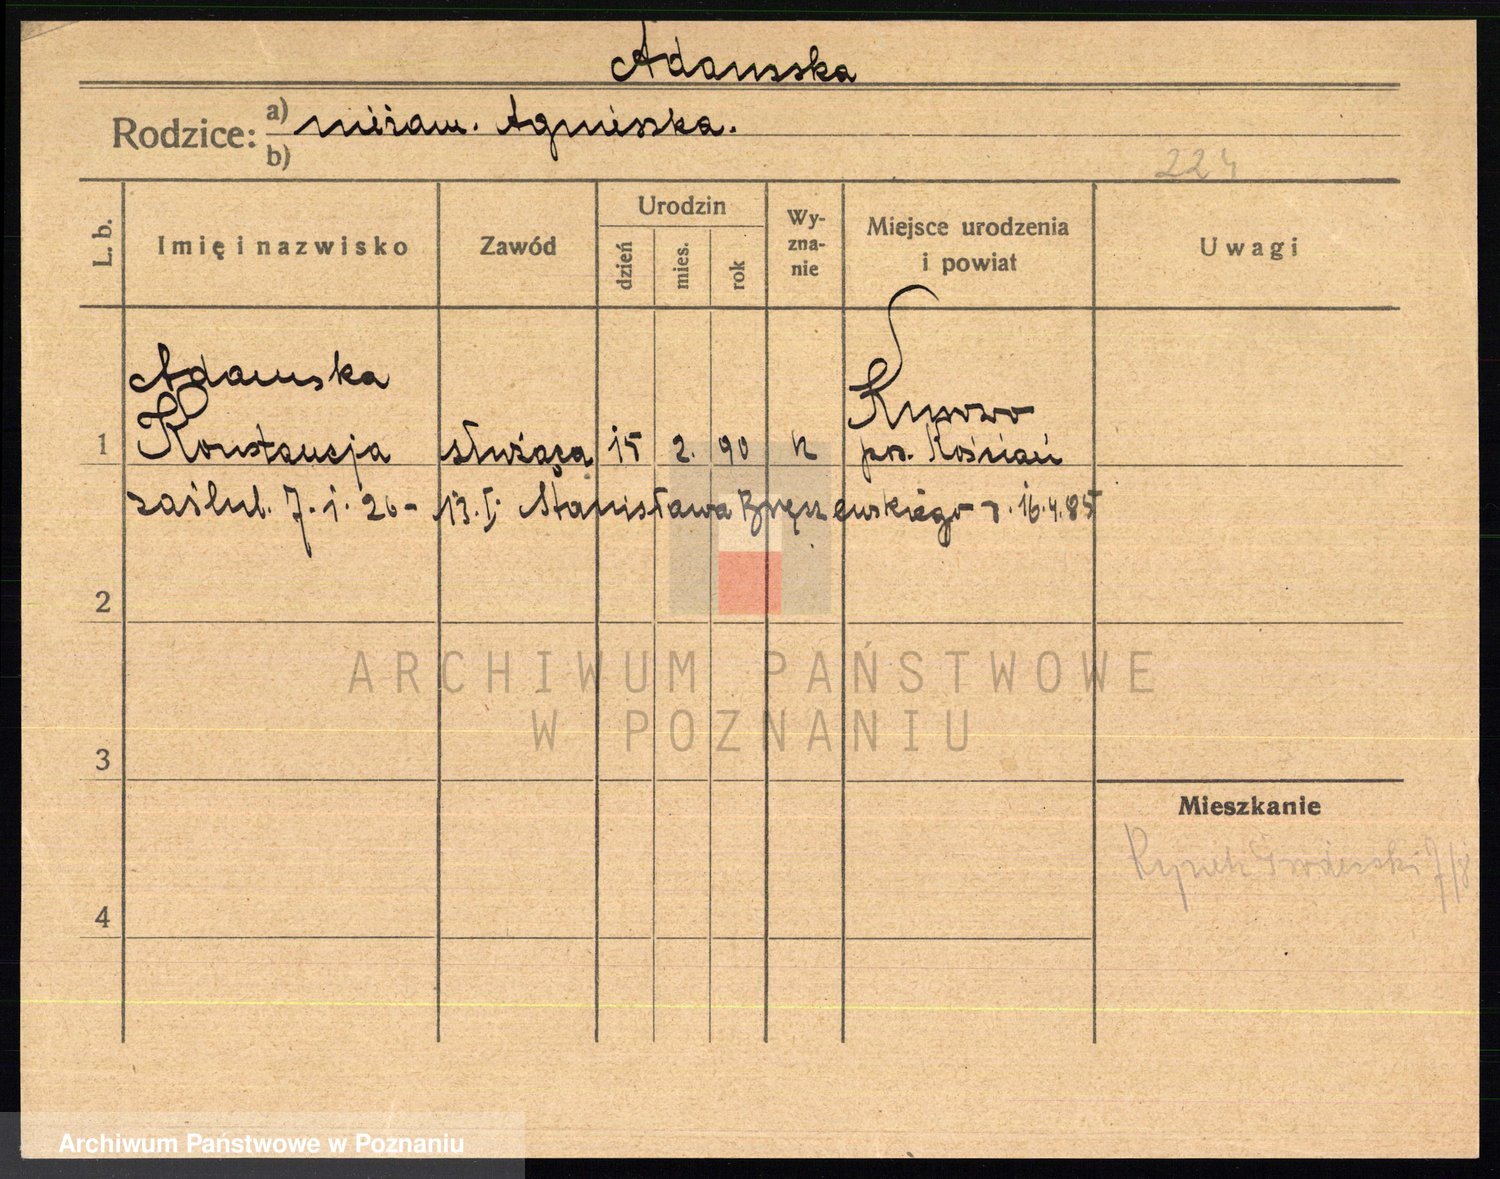 Adamska
Rodzice: a) niezam. Agnieszka.
b)
224
L. b.
Imię i nazwisko
Zawód
Urodzin
dzień
mies.
rok
Wy-
zna-
nie
Miejsce urodzenia
i powiat
Uwagi
Adamska
Kurowo
1 Konstancja służąca 15 2. 90 k pow. Kościan
zaślub. 7.1.26 - 13.I. Stanisława - 16.4.85
2
3
4
Mieszkanie
Rynek Śródecki
ARCHIWUM PAŃSTWOWE
W POZNANIU
Archiwum Państwowe w Poznaniu